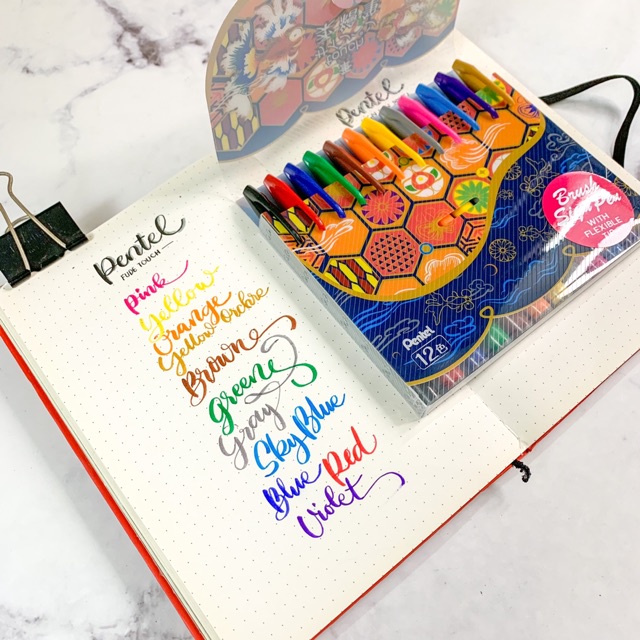 Pentel
FUDE TOUCH
Pink
Yellow
Orange
Yellow Ordore
Brown
Green
Gray
Sky Blue
Blue Red
Violet
Pentel
Brush
Sign Pen
WITH
FLEXIBLE
Pentel
12色